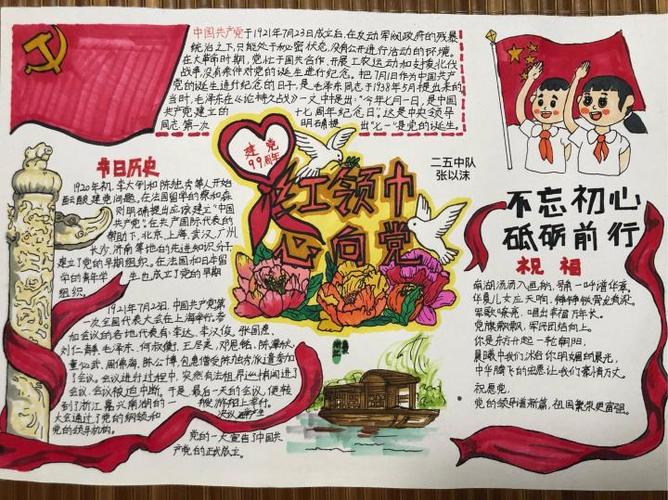 中国共产党于1921年7月23日成立后,在反动军阀政府的残暴
统治之下,只能处于秘密状态,没有公开进行活动的环境。
在大革命时期,党忙于国共合作、开展工农运动和支援北伐
战争,没有条件对党的诞生进行纪念。把7月1日作为中国共产
党的诞生进行纪念的日子,是毛泽东同志于1938年5月提出来的
当时,毛泽东在《论持久战》一文中提出:"今年七月一日,是中国
共产党建立的十七周年纪念日",这是中央领导
同志第一次明确提出"七一"是党的诞生。
建党
99周年
红领巾
心向党
二五中队
张以沫
不忘初心
砥砺前行
节日历史
1920年初,李大钊和陈独秀等人开始
酝酿建党问题。在法国留学的蔡和森
则明确提出应该建立"中国
共产党"。在共产国际代表的
帮助下,北京、上海、武汉、广州
长沙、济南等地的先进知识分子
建立了党的早期组织。在法国和日本留
学的青年学生也成立了党的早期
组织。
1921年7月23日,中国共产党第
一次全国代表大会在上海举行。参
加会议的各地代表有:李达、李汉俊、张国焘、
刘仁静、毛泽东、何叔衡、王尽美、邓恩铭、陈潭秋、
董必武、周佛海、陈公博、包惠僧受陈独秀派遣参加
了会议。会议进行过程中,突然有法租界巡捕闯进了
会议,会议被迫中断。于是,最后一天的会议,便转
到了浙江嘉兴南湖的一艘游船上举行。
大会通过了党的纲领和决议
党的领导机构。
党的一大宣告了中国共
产党的正式成立。
祝福
南湖汤汤入画舫,
华夏儿女立天响,
军歌嘹亮,唱出幸福万年长。
党旗飘飘,军民团结向上。
你是东方升起一轮朝阳,
晨曦中我们沐浴你明媚的晨光,
中华腾飞的思愿让我们豪情万丈。
祝愿党
党的领导谱新篇,祖国繁荣更富强。